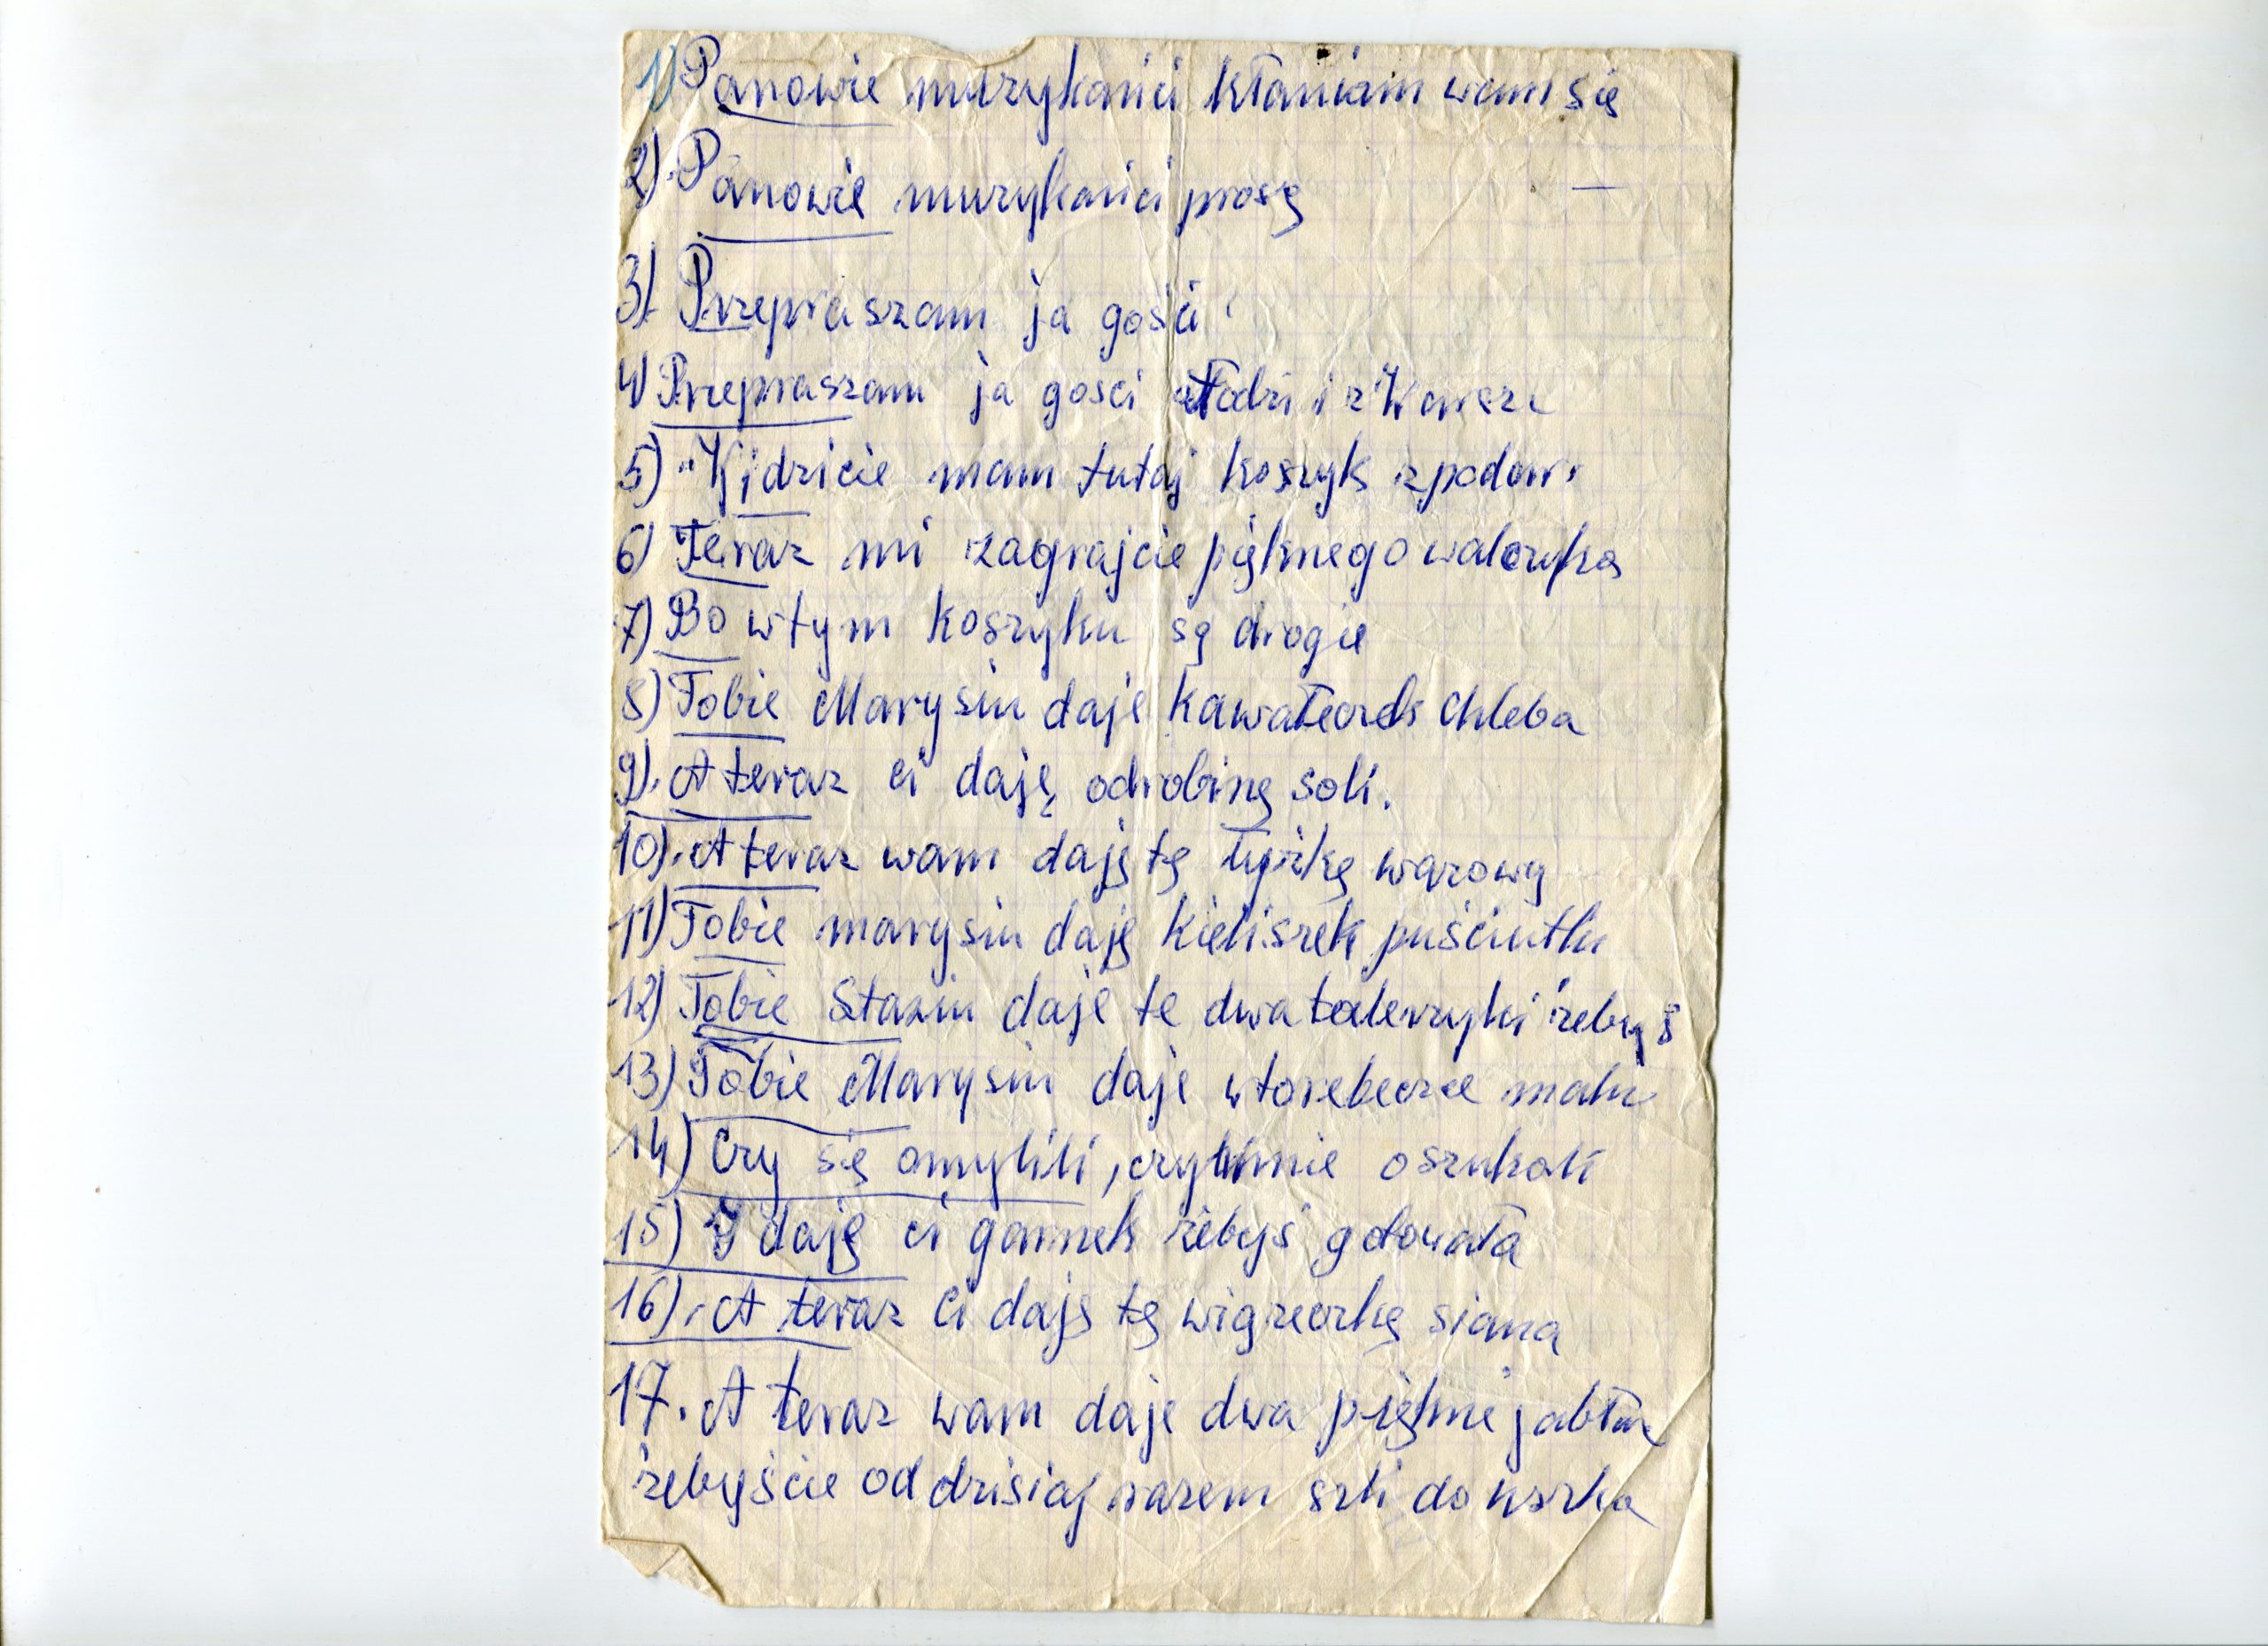 1) Panowie muzykanici kłaniam wam się
2). Panowie muzykanici proszę
3). Przepraszam ja gości
4) Przepraszam ja gosci Łodzi i z Warsza
5) Widzicie mam tutaj koszyk z podar
6) Teraz mi zagrajcie pięknego walczyka
7) Bo w tym koszyku są drogie
8) Tobie Marysiu daje kawałeczek chleba
9). A teraz ci daję odrobinę soli.
10). A teraz wam daję tę łyżkę wazową
11) Tobie marysiu daję kieliszek puściutki
12) Tobie Staziu daje te dwa talerzyki żebyś
13) Tobie Marysiu daje w torebeczce maku
14) Czy się omylili, czyli mnie oszukali
15) I daję ci garnek żebyś gotowała
16). A teraz Ci daję tę wiązeczkę siana
17. A teraz wam daje dwa piękne jabłu
żebyście od dzisiaj razem szli do